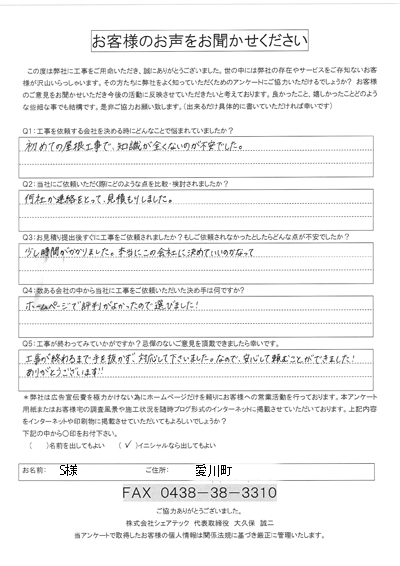 お客様のお声をお聞かせください
この度は弊社に工事をご用命いただき、誠にありがとうございました。世の中には弊社の存在やサービスをご存知ないお客
様が沢山いらっしゃいます。その方たちに弊社をよく知っていただくためのアンケートにご協力いただけるでしょうか? お客様
のご意見をお聞かせいただき今後の活動に反映させていただきたいと考えております。良かったこと、嬉しかったことどのよう
な些細な事でも結構です。是非ご協力お願い致します。(出来るだけ具体的に書いていただければ幸いです)
Q1:工事を依頼する会社を決める時にどんなことで悩まれていましたか?
初めての屋根工事で、知識が全くないのが不安でした。
Q2:当社にご依頼いただく際にどのような点を比較・検討されましたか?
何社か連絡をとって、見積もりしました。
Q3:お見積り提出後すぐに工事をご依頼されましたか?もしご依頼されなかったとしたらどんな点が不安でしたか?
少し時間がかかりました。本当にこの会社に決めていいのかなって
Q4:数ある会社の中から当社に工事をご依頼いただいた決め手は何ですか?
ホームページで評判がよかったので選びました!
Q5:工事が終わってみていかがですか?忌憚のないご意見を頂戴できましたら幸いです。
工事が終わるまで手を抜かず、対応して下さいました。なので、安心して頼むことができました!
ありがとうございます!!
*弊社は広告宣伝費を極力かけない為にホームページだけを頼りにお客様への営業活動を行っております。本アンケート
用紙またはお客様宅の調査風景や施工状況を随時ブログ形式のインターネットに掲載させていただいております。上記内容
をインターネットや印刷物に掲載させていただいてもよろしいでしょうか?
下記の中から〇印をお付下さい。
( )名前を出してもよい (✓)イニシャルなら出してもよい
お名前: S様 ご住所: 愛川町
FAX 0438-38-3310
ご協力ありがとうございました。
株式会社シェアテック 代表取締役 大久保 誠二
当アンケートで取得したお客様の個人情報は関係法規に基づき厳正に管理いたします。